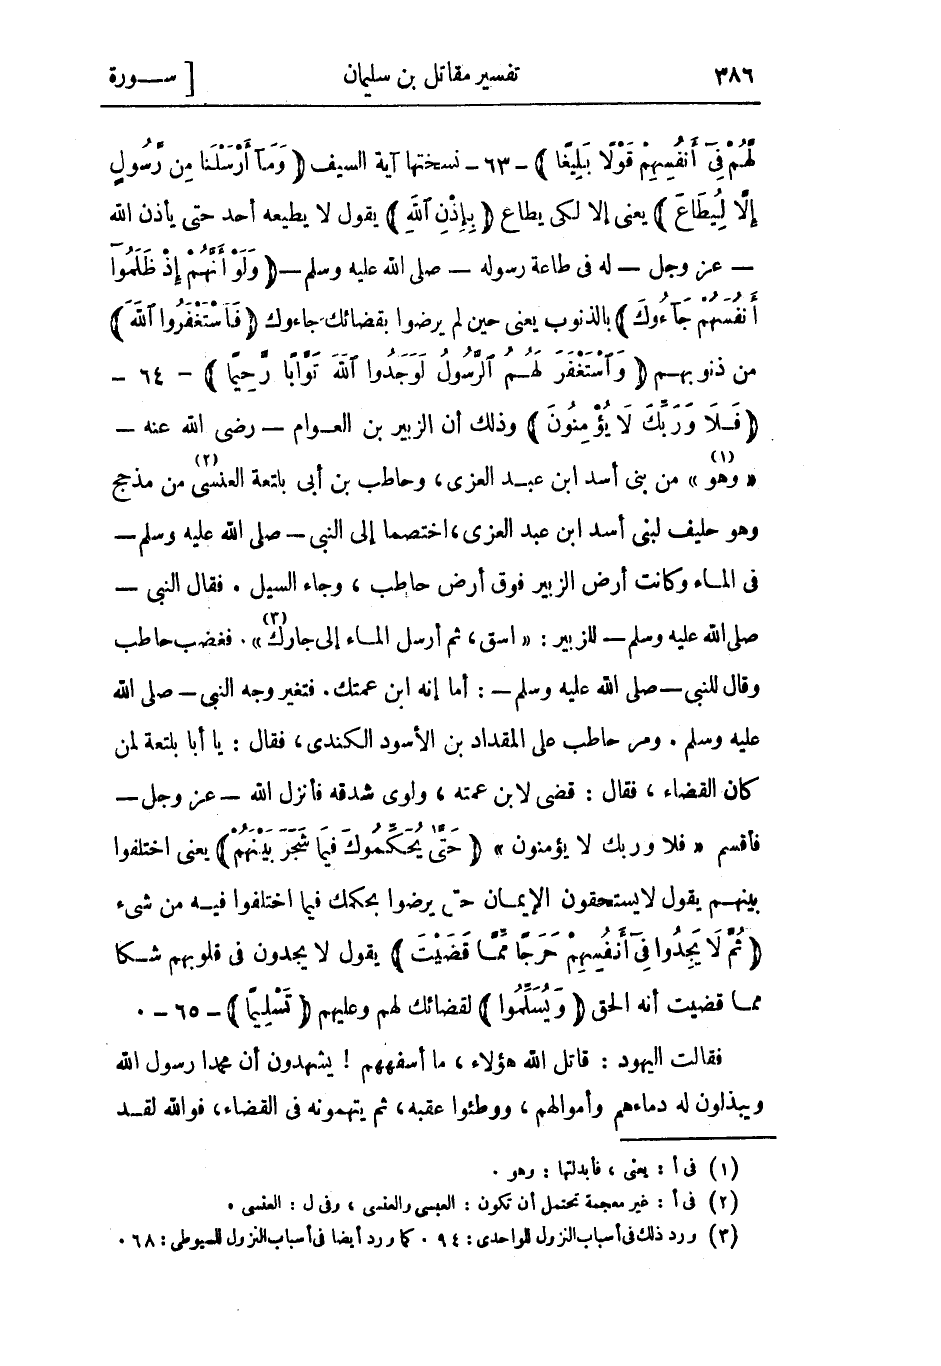 ٣٨٦ تفسير مقاتل بن سليمان [ ســـورة
لَّهُمْ فِىٓ أَنفُسِهِمْ قَوْلًا بَلِيغًا ) - ٦٣ - نسختها آية السيف ( وَمَآ أَرْسَلْنَا مِن رَّسُولٍ
إِلَّا لِيُطَاعَ ) يعنى إلا لكى يطاع ( بِإِذْنِ ٱللَّهِ ) يقول لا يطيعه أحد حتى يأذن الله
— عز وجل — له فى طاعة رسوله — صلى الله عليه وسلم — ( وَلَوْ أَنَّهُمْ إِذ ظَّلَمُوٓا
أَنفُسَهُمْ جَآءُوكَ ) بالذنوب يعنى حين لم يرضوا بقضائك جاءوك ( فَٱسْتَغْفَرُوا ٱللَّهَ )
من ذنوبهـم ( وَٱسْتَغْفَرَ لَهُـمُ ٱلرَّسُولُ لَوَجَدُوا ٱللَّهَ تَوَّابًا رَّحِيمًا ) - ٦٤ -
( فَـلَا وَرَبِّكَ لَا يُؤْمِنُونَ ) وذلك أن الزبير بن العـوام — رضى الله عنه —
« وهو (١) » من بنى أسد ابن عبـد العزى ، وحاطب بن أبى بلتعة العنسى (٢) من مذحج
وهو حليف لبنى أسد ابن عبد العزى ، اختصما إلى النبى — صلى الله عليه وسلم —
فى المـاء وكانت أرض الزبير فوق أرض حاطب ، وجاء السيل . فقال النبى —
صلى الله عليه وسلم — للزبير : « اسق ، ثم أرسل المـاء إلى جارك (٣) » . فغضب حاطب
وقال للنبى — صلى الله عليه وسلم — : أما إنه ابن عمتك . فتغير وجه النبى — صلى الله
عليه وسلم . ومر حاطب على المقداد بن الأسود الكندى ، فقال : يا أبا بلتعة لمن
كان القضاء ، فقال : قضى لابن عمته ، ولوى شدقه فأنزل الله — عز وجل —
فأقسم « فلا وربك لا يؤمنون » ( حَتَّىٰ يُحَكِّمُوكَ فِيمَا شَجَرَ بَيْنَهُمْ ) يعنى اختلفوا
بينهـم يقول لا يستحقون الإيمـان حتى يرضوا بحكمك فيما اختلفوا فيـه من شىء
( ثُمَّ لَا يَجِدُوا فِىٓ أَنفُسِهِمْ حَرَجًا مِّمَّا قَضَيْتَ ) يقول لا يجدون فى قلوبهم شـكا
ممـا قضيت أنه الحق ( وَيُسَلِّمُوا ) لقضائك لهم وعليهم ( تَسْلِيمًا ) - ٦٥ - .
فقالت اليهود : قاتل الله هؤلاء ، ما أسفههم ! يشهدون أن محمدا رسول الله
ويبذلون له دماءهم وأموالهم ، ووطئوا عقبه ، ثم يتهمونه فى القضاء ، فوالله لقـد
(١) فى أ : يعنى ، فأبدلتها : وهو .
(٢) فى أ : غير معجمة تحتمل أن تكون : العبسى والعنسى ، وفى ل : العنسى .
(٣) ورد ذلك فى أسباب النزول للواحدى : ٩٤ . كما ورد أيضا فى أسباب النزول للسيوطى : ٦٨ .